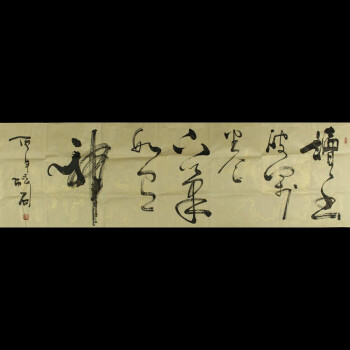 讀書
破萬
卷
下筆
如有
神